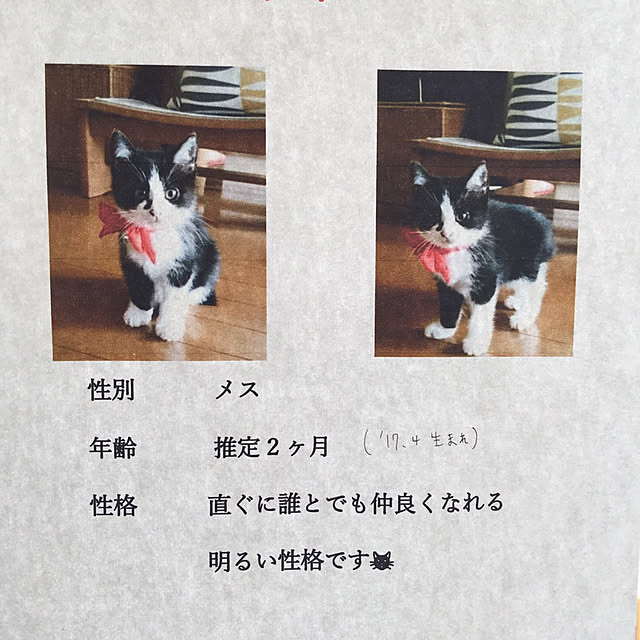 性別 メス
年齢 推定2ヶ月 ('17.4 生まれ)
性格 直ぐに誰とでも仲良くなれる
明るい性格です